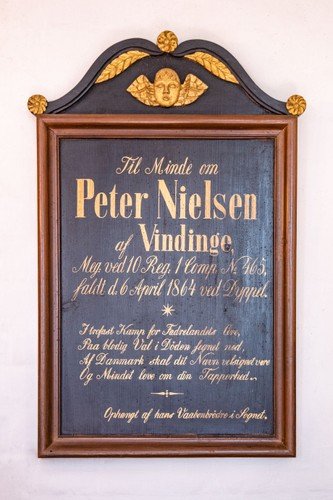 Til Minde om
Peter Nielsen
af Vindinge,
Meg. ved 10 Reg. 1 Comp. No 465,
faldt d. 6 April 1864 ved Dyppel.
I tvefast Kamp for Fædrelandets love,
Paa blodig Val i Døden segnet ned,
Af Danmark skal dit Navn velsignet være
Og Mindet leve om din Tapperhed.
Ophængt af hans Vaabenbrødre i Sognet.